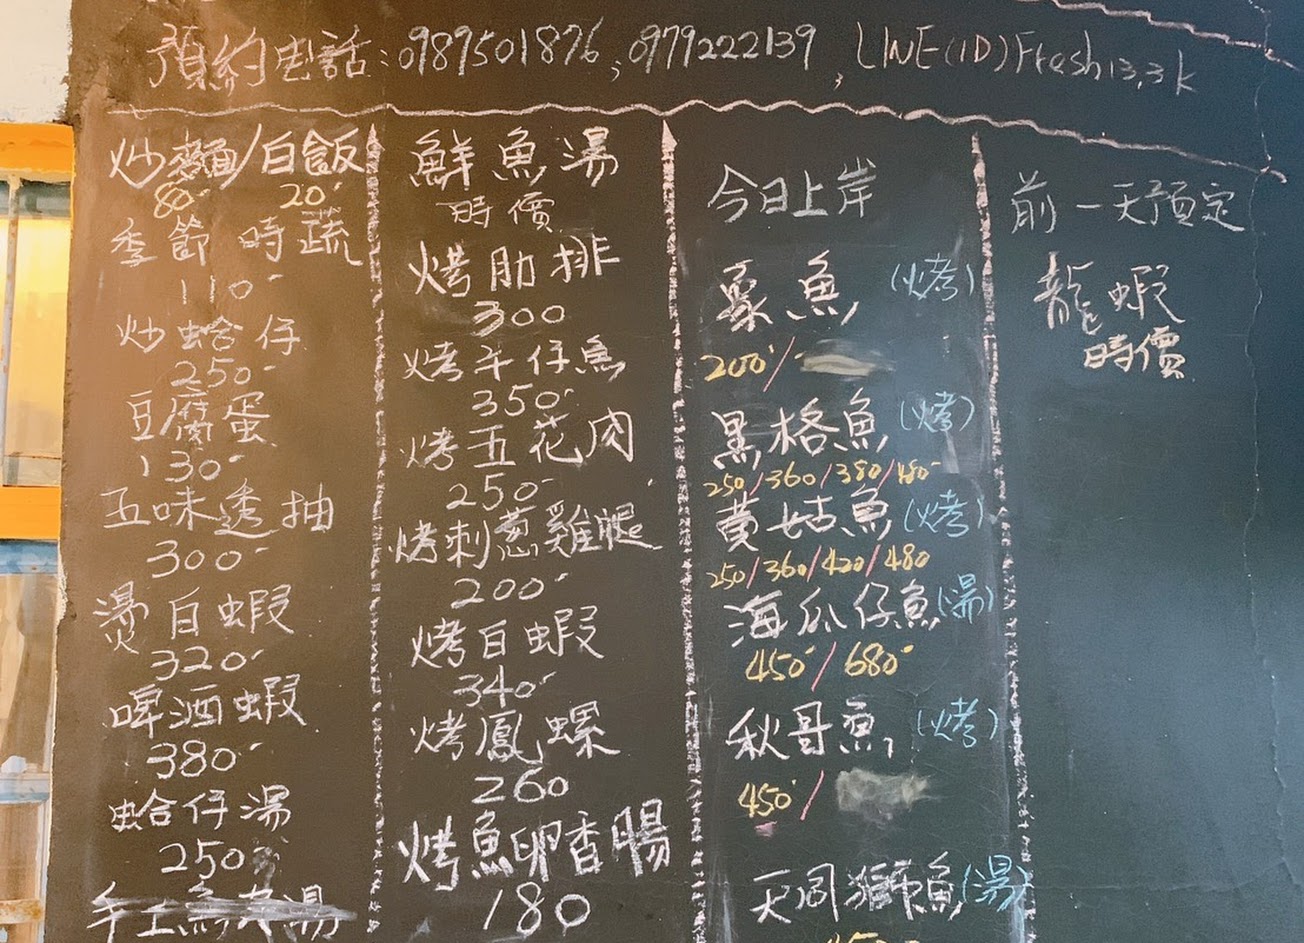 預約电話：0989501876，0979222139，LINE(ID)Fresh13,3k
炒麵/白飯
80 20
季節時蔬
110
炒蛤仔
250
豆腐蛋
130
五味透抽
300
燙白蝦
320
啤酒蝦
380
蛤仔湯
250
鮮魚湯
時價
烤肋排
300
烤午仔魚
350
烤五花肉
250
烤刺蔥雞腿
200
烤白蝦
340
烤鳳螺
260
烤魚卵香腸
180
今日上岸
魚(烤)
200/
黑格魚(烤)
250/360/380/480
黄姑魚(烤)
250/360/420/480
海爪仔魚(湯)
450/680
秋哥魚(烤)
450/
(湯)
前一天預定
龍蝦
時價